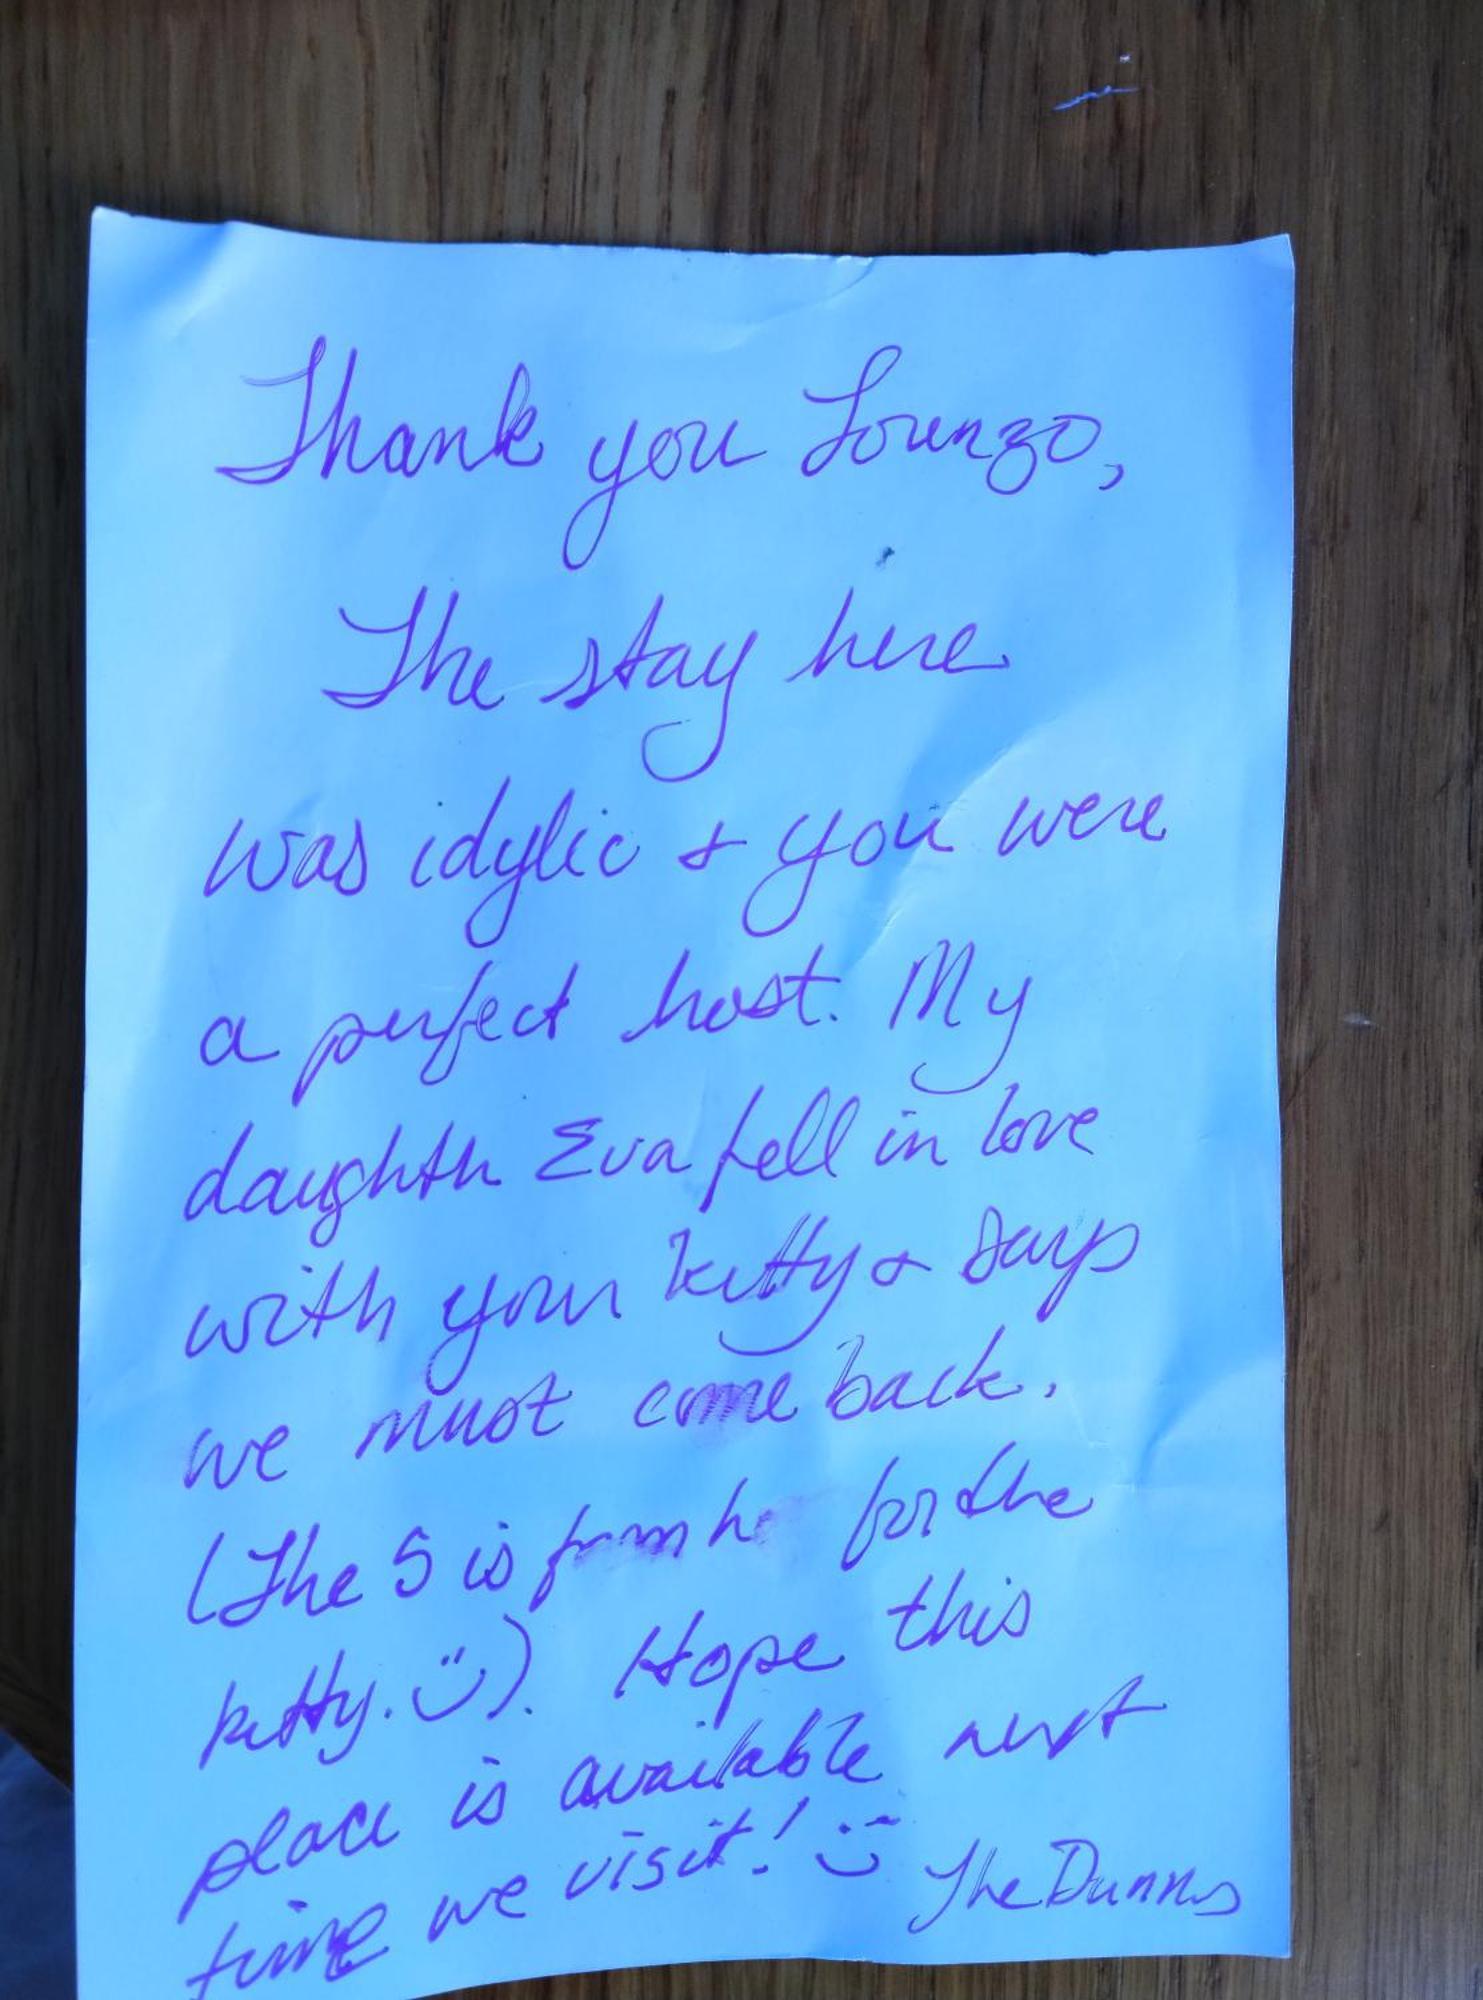 Thank you Lorenzo,
The stay here
was idylic & you were
a perfect host. My
daughter Eva fell in love
with your kitty & says
we must come back.
(The 5 is from her for the
kitty. :)). Hope this
place is available next
time we visit! ;) The Dunns